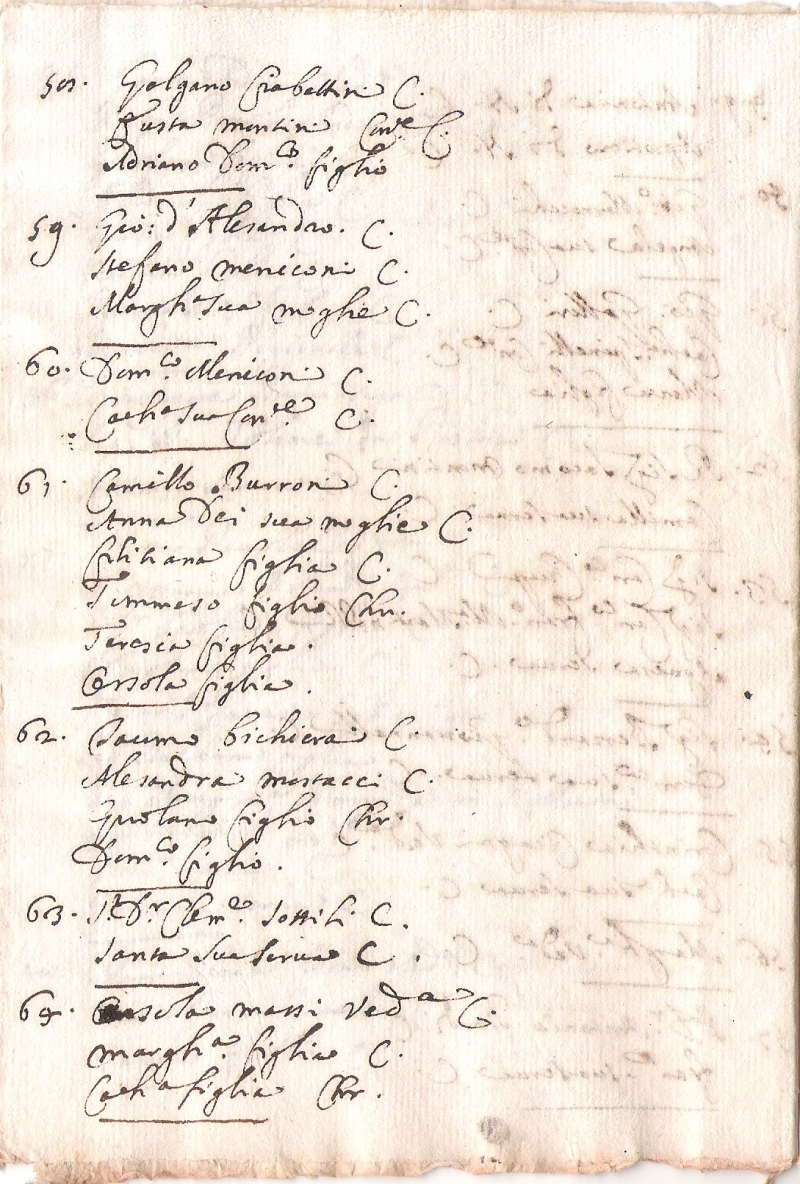 58. Galgano Ciabattini C.
Giusta montini Con.te C.
Adriano Dom.co figlio
59. Gio: d'Alesandro. C.
Stefano meniconi C.
Margh.a sua moglie C.
60. Dom.co Meniconi C.
Cath.a sua Con.te C.
61. Camillo Burroni C.
Anna Dei sua moglie C.
feliciana figlia C.
Tommaso figlio Chr.
Teresia figlia.
Orsola figlia.
62. Jacomo bichierai C.
Alesandra mostacci C.
figlio Chr.
Dom.co figlio.
63. S.r D.r Clem.e Sottili C.
Santa sua serva C.
64. Orsola massi Ved.a C.
margh.a figlia C.
Cath.a figlia Chr.